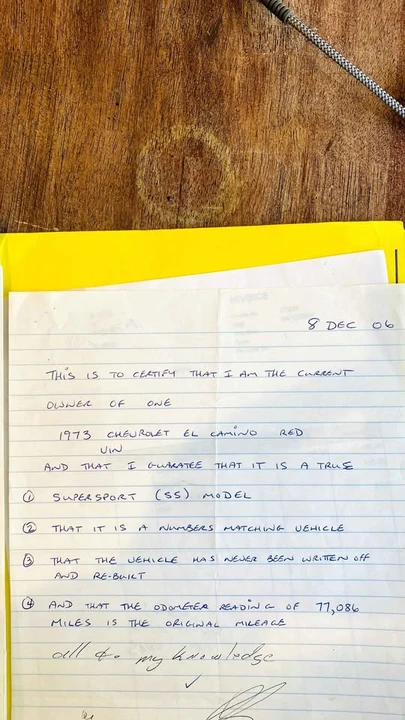 8 DEC 06
THIS IS TO CERTIFY THAT I AM THE CURRENT
OWNER OF ONE
1973 CHEVROLET EL CAMINO RED
VIN
AND THAT I GUARATEE THAT IT IS A TRUE
① SUPERSPORT (SS) MODEL
② THAT IT IS A NUMBERS MATCHING VEHICLE
③ THAT THE VEHICLE HAS NEVER BEEN WRITTEN OFF
AND RE-BUILT
④ AND THAT THE ODOMETER READING OF 77,086
MILES IS THE ORIGINAL MILEAGE
all to my knowledge